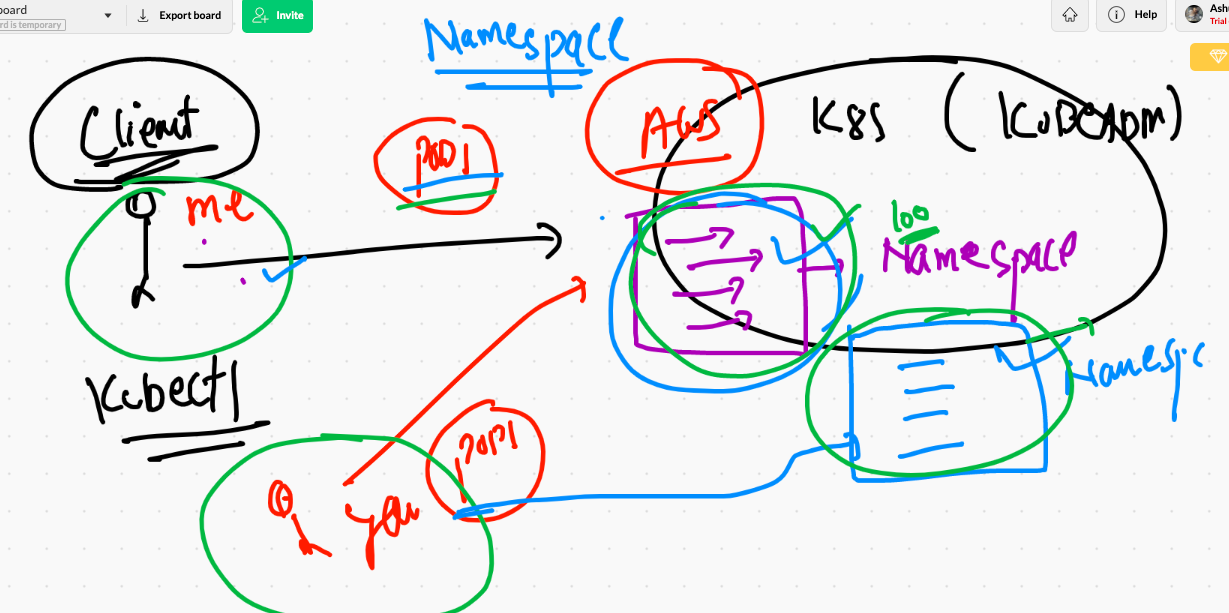 board
rd is temporary
Export board
Invite
Help
Ash
Trial
Namespace
Client
me
POD1
AWS
K8S (KUBEADM)
100
Namespace
Kubectl
POD1
you